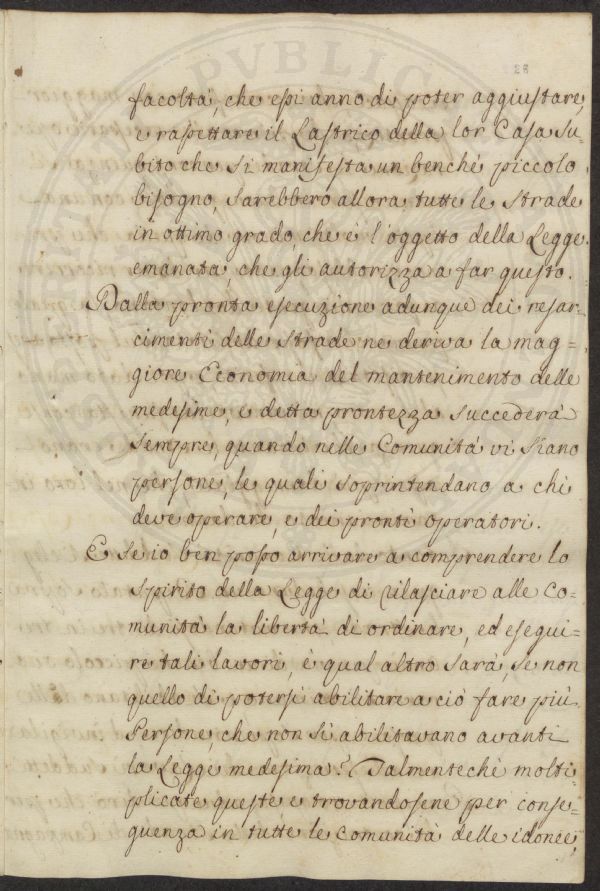 28
facoltà, che essi anno di poter aggiustare,
e raspettare il Lastrico della lor Casa su=
bito che si manifesta un benchè piccolo
bisogno, sarebbero allora tutte le strade
in ottimo grado, che è l'oggetto della Legge
emanata, che gli autorizza a far questo.
Dalla pronta esecuzione adunque dei resar=
cimenti delle strade ne deriva la mag=
giore Economia del mantenimento delle
medesime, e detta prontezza succederà
sempre, quando nelle Comunità vi siano
persone, le quali soprintendano a chi
deve operare, e dei pronti operatori.
E se io ben posso arrivare a comprendere lo
spirito della Legge di rilasciare alle Co=
munità la libertà di ordinare, ed esegui=
re tali lavori, e qual altro sarà, se non
quello di potersi abilitare a ciò fare più
Persone, che non si abilitavano avanti
la Legge medesima? Talmentechè molti=
plicate queste e trovandosene per conse=
guenza in tutte le comunità delle idonee,